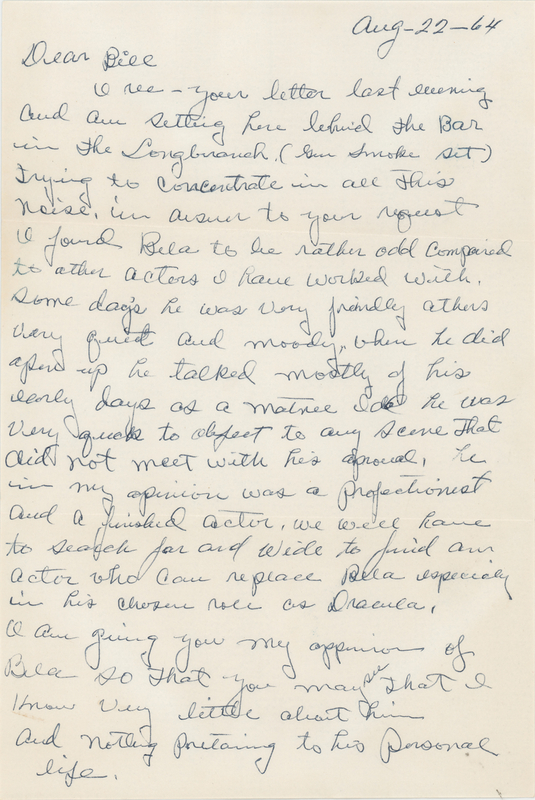 Aug-22-64
Dear Bill
I rec - your letter last evening
and am setting here behind the Bar
in the Longbranch. (Gun Smoke set)
Trying to concentrate in all this
noise. in answer to your request
I found Bela to be rather odd compared
to other actors I have worked with.
Some days he was very friendly others
very quiet and moody, when he did
open up he talked mostly of his
early days as a matnee Idol he was
very quick to object to any scene that
did not meet with his aproval, he
in my opinion was a profectionist
and a finished actor. we will have
to search far and wide to find an
actor who can replace Bela especialy
in his chosen role as Dracula.
I am giving you my oppinion of
Bela so that you may see that I
know very little about him
and nothing pretaining to his personal
life.